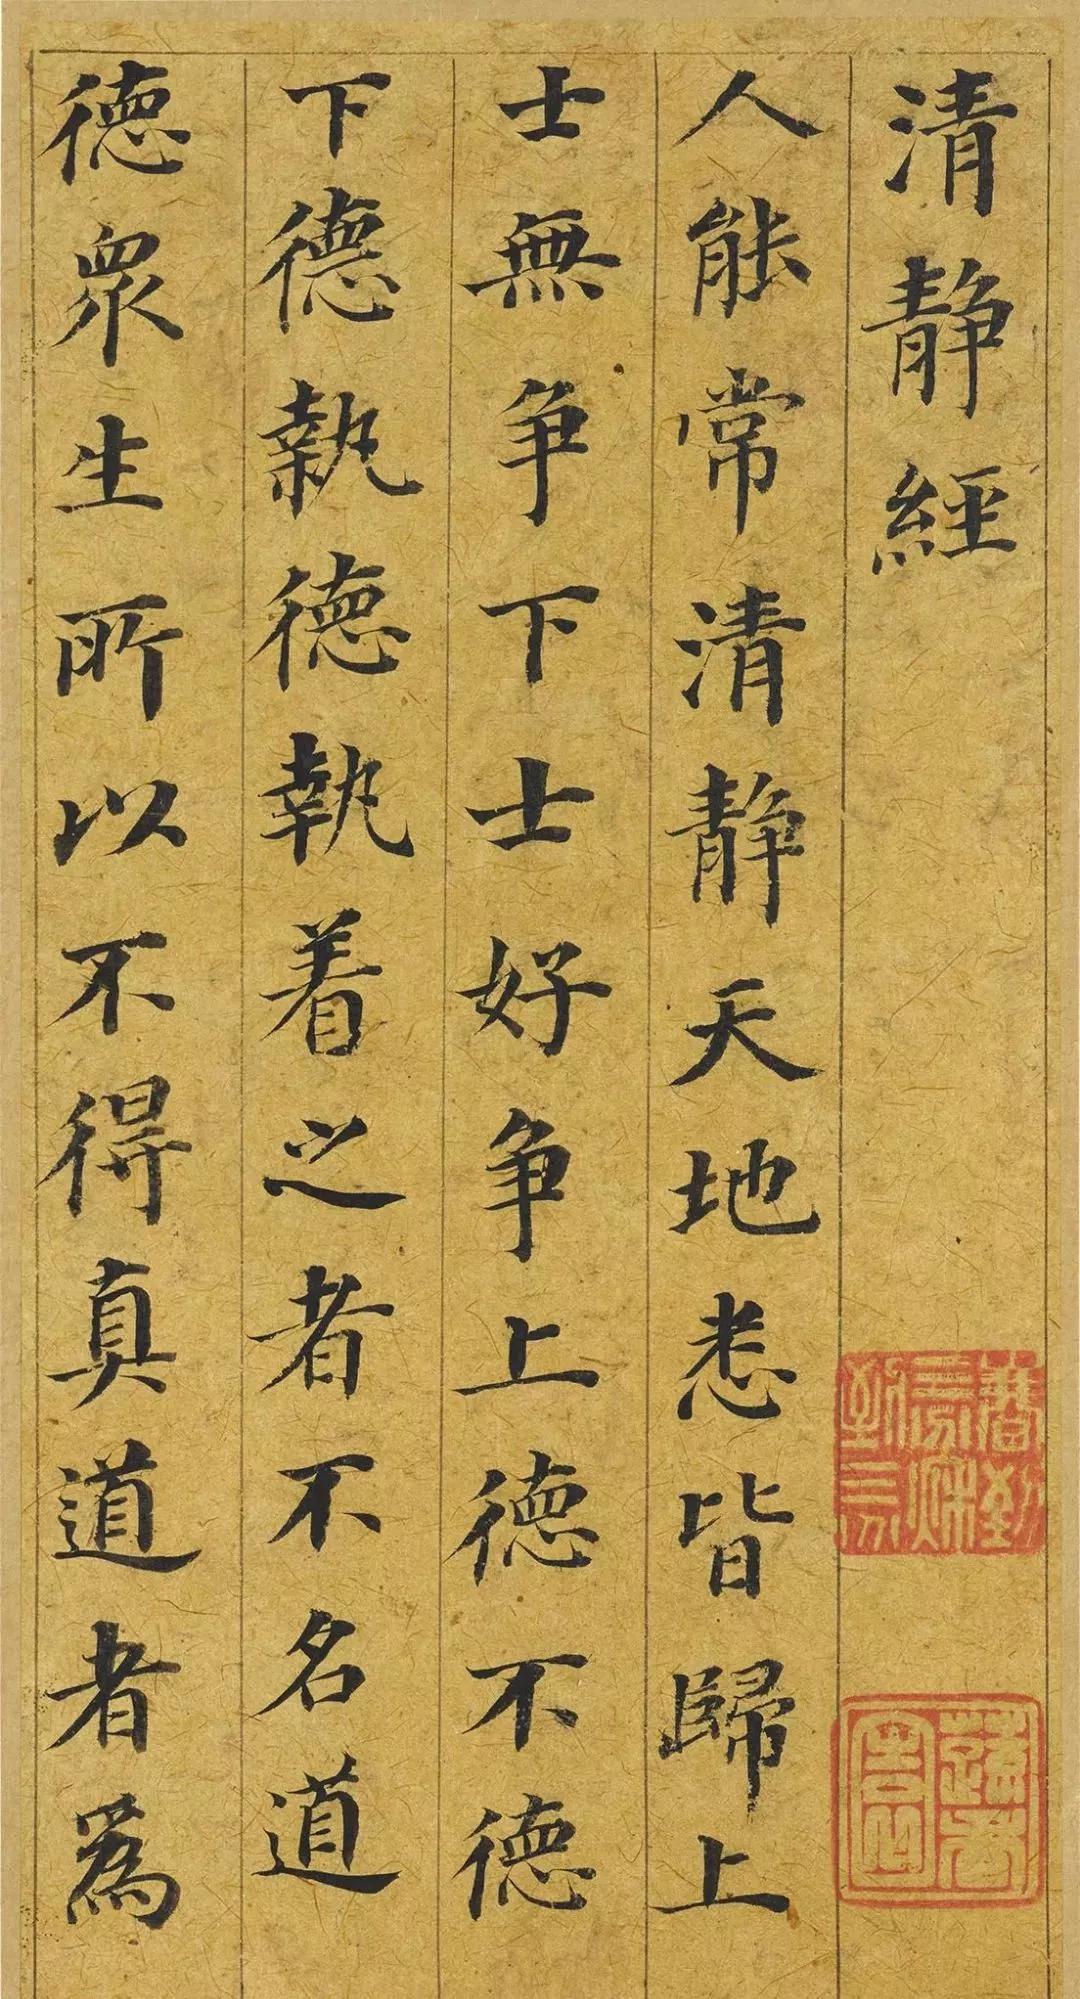 清静經
人能常清静天地悉皆歸上
士無争下士好争上德不德
下德執德執着之者不名道
德眾生所以不得真道者爲